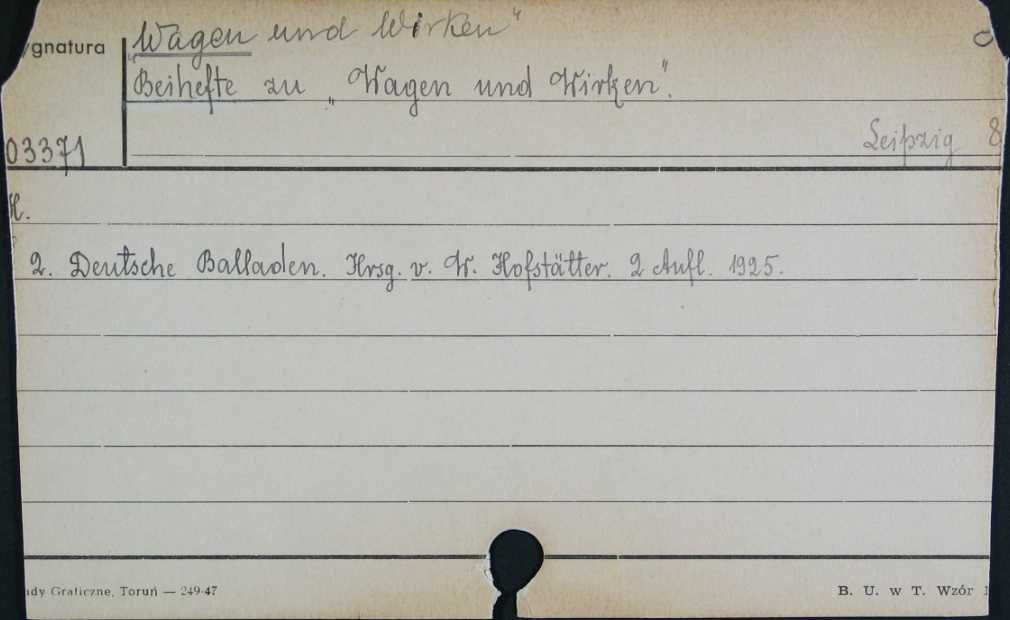 "Wagen und Wirken"
ygnatura
Beihefte zu „Wagen und Wirken".
03371
Leipzig 8
H.
2. Deutsche Balladen. Hrsg. v. W. Hofstätter. 2 Aufl. 1925.
ady Graficzne, Toruń — 249-47
B. U. w T. Wzór 1